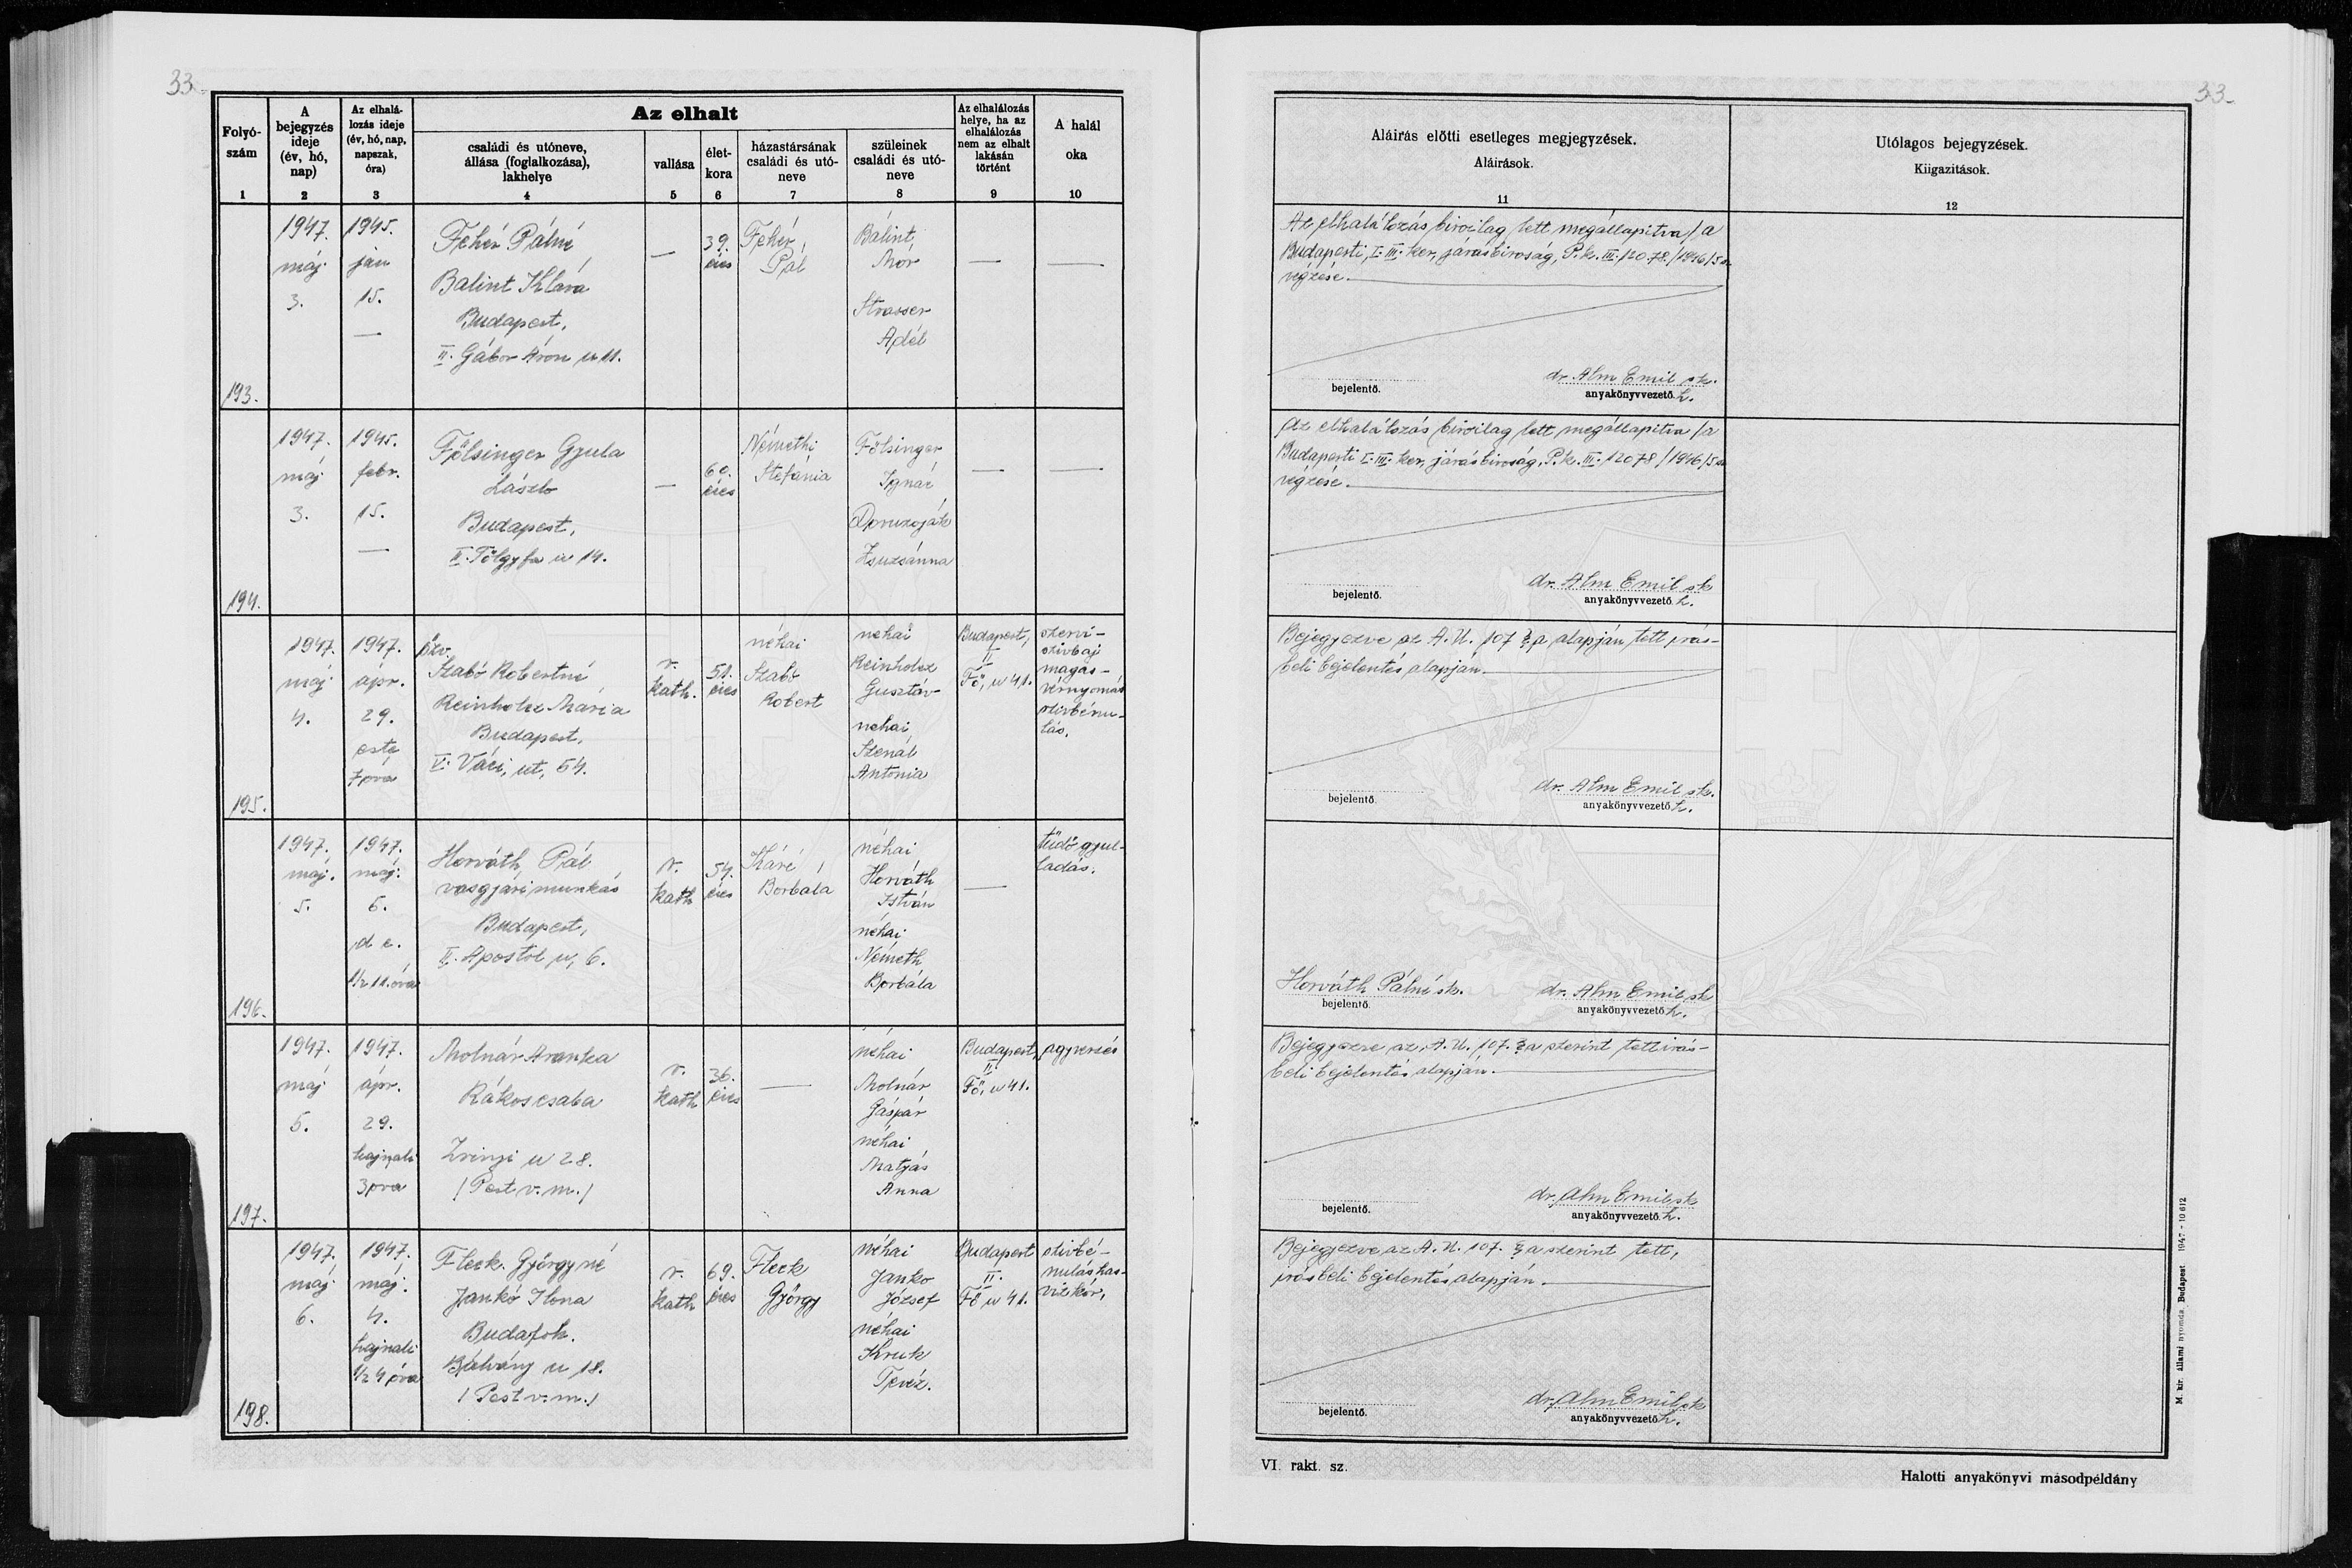 33.
Folyó-
szám
1
A
bejegyzés
ideje
(év, hó,
nap)
2
Az elhalá-
lozás ideje
(év, hó, nap,
napszak,
óra)
3
Az elhalt
családi és utóneve,
állása (foglalkozása),
lakhelye
4
vallása
5
élet-
kora
6
házastársának
családi és utó-
neve
7
szüleinek
családi és utó-
neve
8
Az elhalálozás
helye, ha az
elhalálozás
nem az elhalt
lakásán
történt
9
A halál
oka
10
193.
1947.
máj
3.
1945.
jan
15.
—
Fehér Pálné
Balint Klára
Budapest,
II. Gábor Áron u 11.
—
39.
éves
Fehér
Pál
Bálint
Mór
Strasser
Adél
—
—
194.
1947.
máj
3.
1945.
febr.
15.
—
Fölsinger Gyula
László
Budapest,
II. Tölgyfa u 14.
—
60.
éves
Némethi
Stefánia
Fölsinger
Ignác
Zsuzsánna
—
—
195.
1947.
máj
4.
1947.
ápr.
29.
este
7 óra
özv.
Szabó Robertné
Reinholcz Mária
Budapest,
V. Váci, ut, 54.
r.
kath.
51.
éves
néhai
Szabó
Robert
néhai
Reinholcz
Gusztáv
néhai
Szenál
Antonia
Budapest,
II
Fő, u 41.
szervi-
szivbaj
magas-
vérnyomás
szivbénu-
lás.
196.
1947.
máj.
5.
1947.
máj.
5.
d e.
1/2 11. óra
Horváth Pál
vasgyári munkás
Budapest,
II. Apostol u, 6.
r.
kath
54.
éves
Káré
Borbála
néhai
Horváth
István
néhai
Németh
Borbála
—
tüdőgyul-
ladás.
197.
1947.
máj
5.
1947.
ápr.
29.
hajnali
3 óra
Molnár Aranka
Rákoscsaba
Zrinyi u 28.
/ Pest v. m. /
r.
kath
36.
éves
—
néhai
Molnár
Gáspár
néhai
Matyás
Anna
Budapest,
II
Fő, u 41.
agyvérzés
198.
1947.
máj
6.
1947.
máj.
4.
hajnali
1/2 4 óra
Fleck Györgyné
Jankó Ilona
Budafok.
Bálvány u 18.
/ Pest v. m. /
r.
kath
69.
éves
Fleck
György
néhai
Janko
József
néhai
Kruk
Teréz.
Budapest
II.
Fő u 41.
szivbé-
nulás has-
vizkór,
33.
Aláirás előtti esetleges megjegyzések.
Aláirások.
11
Utólagos bejegyzések.
Kiigazitások.
12
Az elhalálozás biróilag lett megállapitva / a
Budapesti, I-III. ker, járásbiroság, P.k. III. 12078/1946/5 sz
végzése.
bejelentő.
dr. Alm Emil sk.
anyakönyvvezető h.
Az elhalálozás biróilag lett megállapitva / a
Budapesti I-III. ker, járásbiroság, P.k. III. 12078/1946/5 sz
végzése.
bejelentő.
dr. Alm Emil sk
anyakönyvvezető h.
Bejegyezve az A. U. 107 § a alapján tett irás-
beli bejelentés alapján.
bejelentő.
dr. Alm Emil sk.
anyakönyvvezető h.
Horváth Pálné sk.
bejelentő.
dr. Alm Emil sk
anyakönyvvezető h.
Bejegyezve az A. U. 107. § a szerint tett irás-
beli bejelentés alapján.
bejelentő.
dr. Alm Emil sk
anyakönyvvezető h.
Bejegyezve az A. U. 107. § a szerint tett,
irásbeli bejelentés alapján.
bejelentő.
dr. Alm Emil sk
anyakönyvvezető h.
M. kir. állami nyomda, Budapest. 1947 - 10 612
VI. rakt. sz.
Halotti anyakönyvi másodpéldány